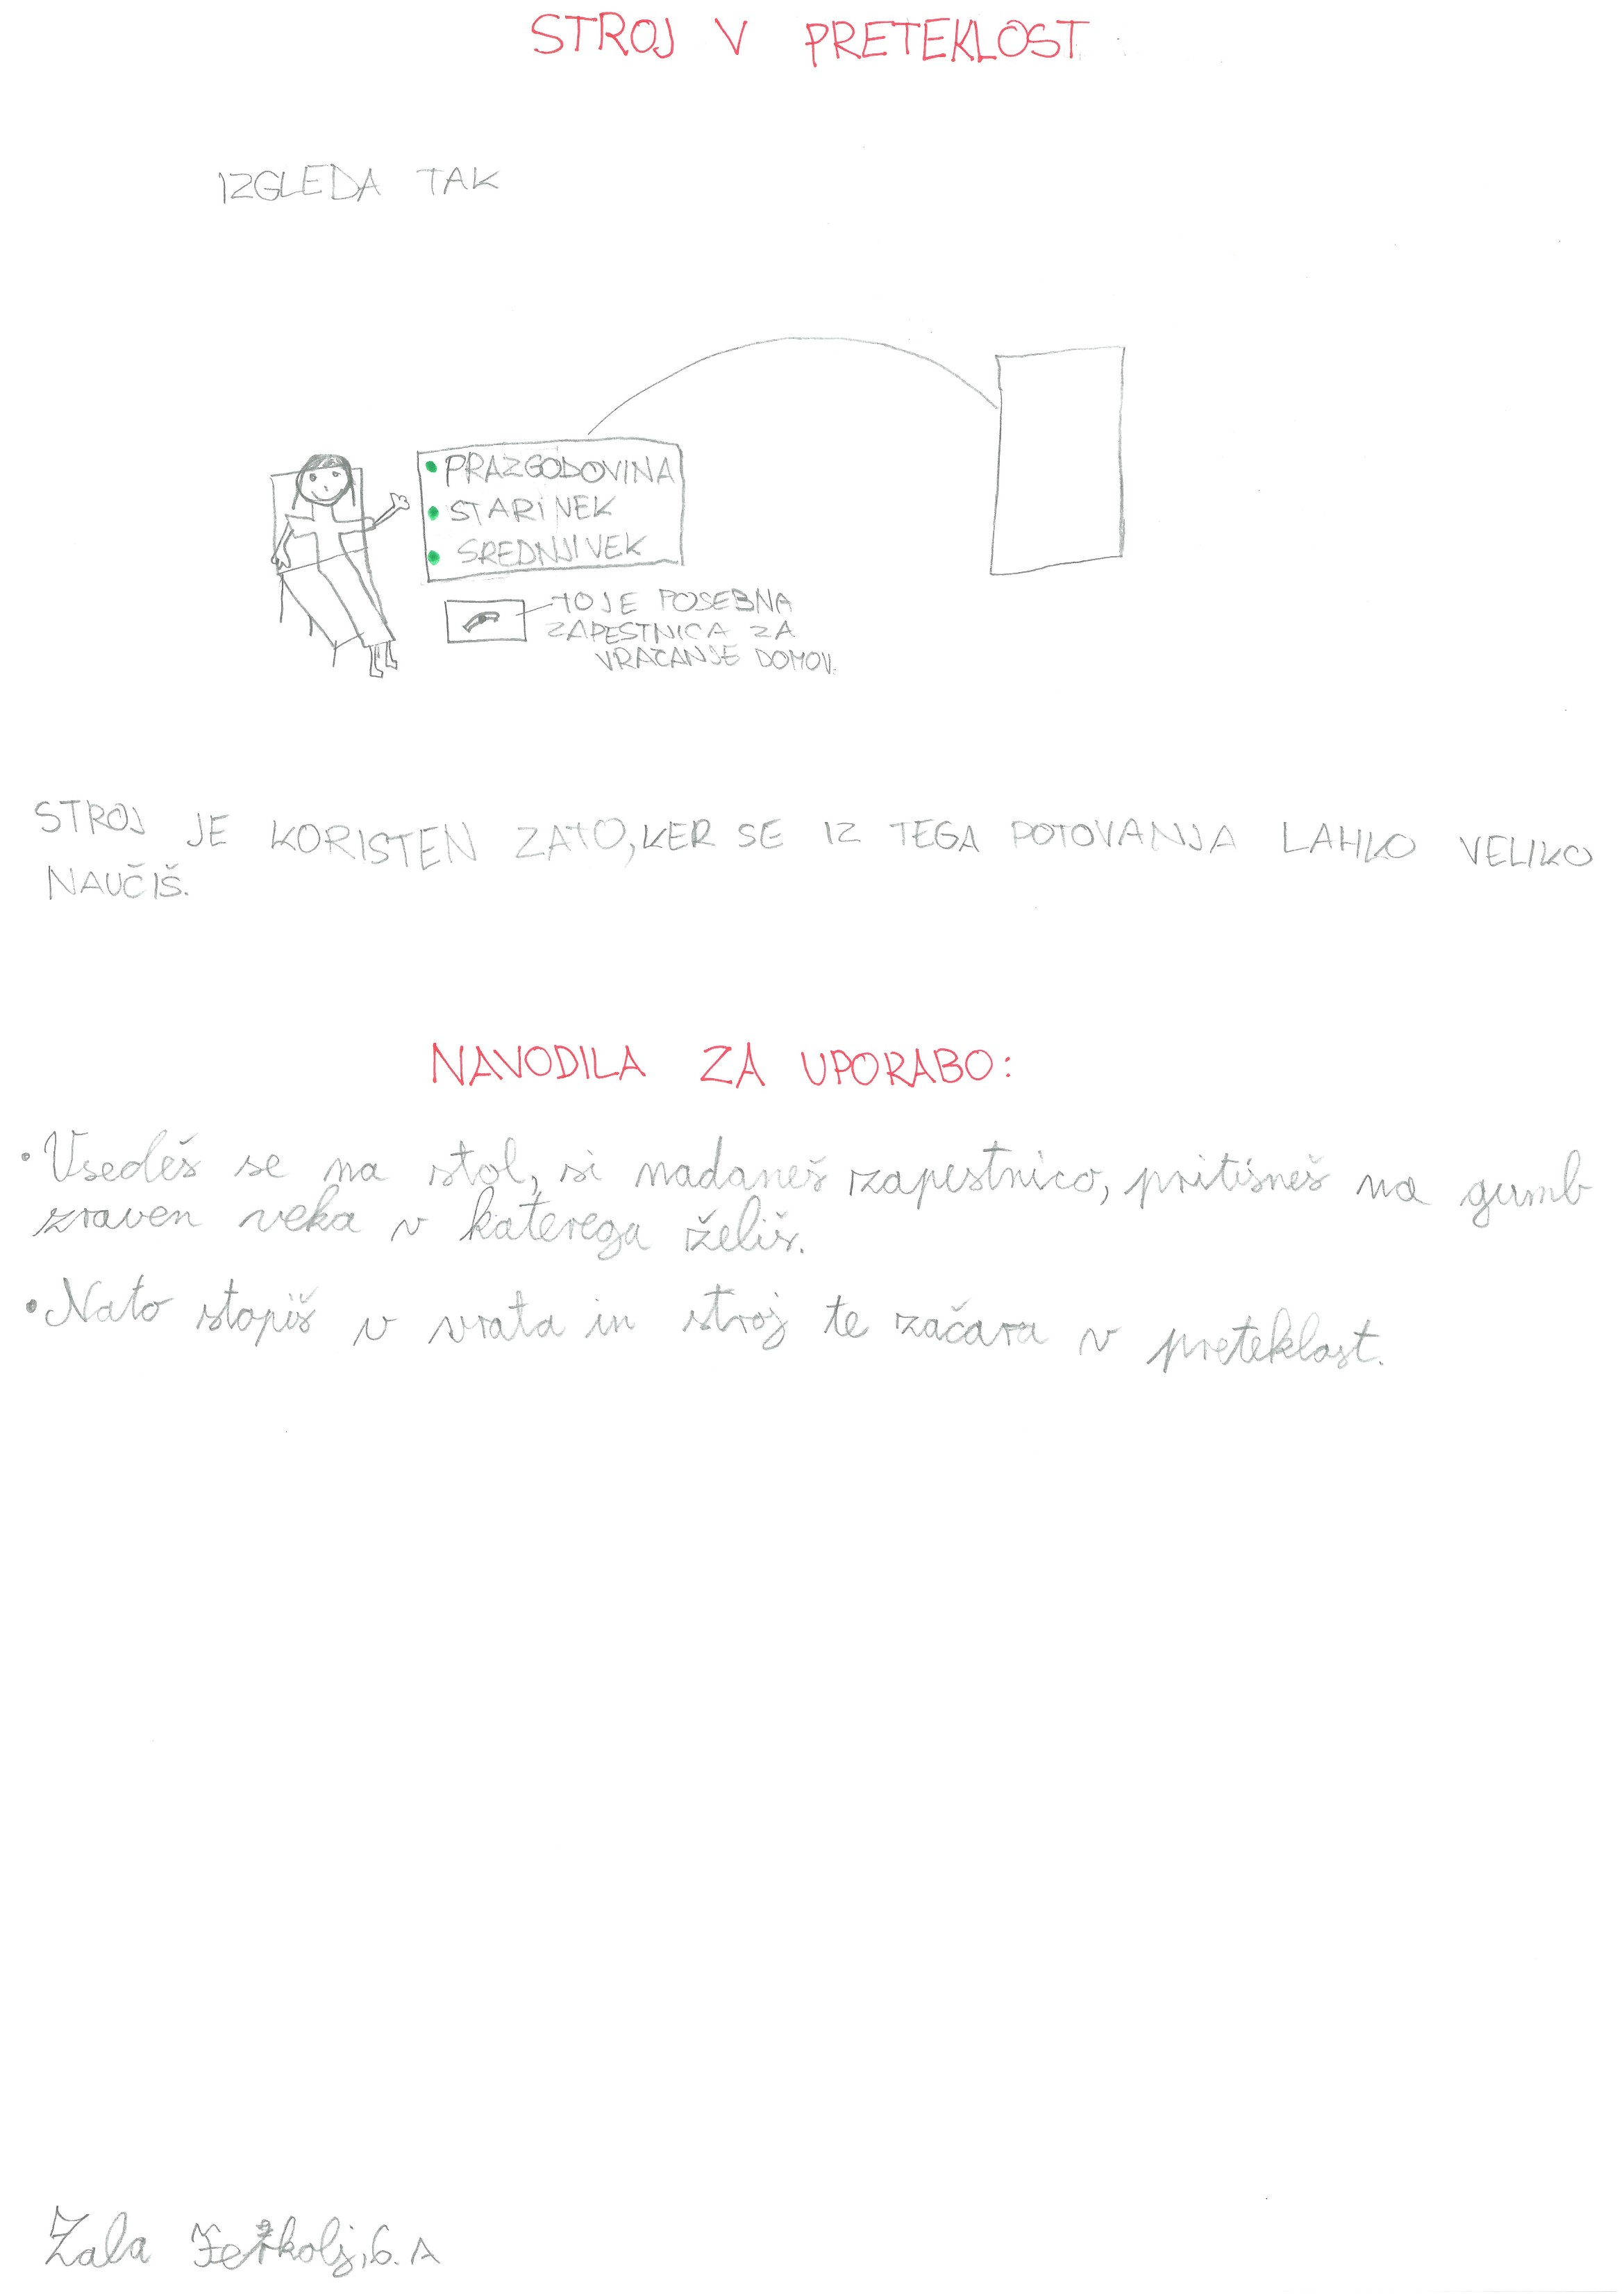 STROJ V PRETEKLOST
IZGLEDA TAK
• PRAZGODOVINA
• STARI NEK
• SREDNJI VEK
TO JE POSEBNA
ZAPESTNICA ZA
VRAČANJE DOMOV.
STROJ JE KORISTEN ZATO, KER SE IZ TEGA POTOVANJA LAHKO VELIKO
NAUČIŠ.
NAVODILA ZA UPORABO:
• Vsedeš se na stol, si nadaneš zapestnico, pritisneš na gumb
zraven veka v katerega želiš.
• Nato stopiš v vrata in stroj te začara v preteklost.
Zala 6. A